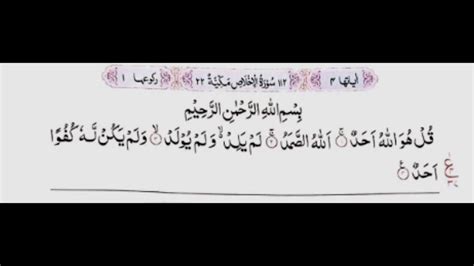 اٰیاتها ۴ ۱۱۲ سُوْرَةُ الْاِخْلَاصِ مَكِّيَّةٌ ۲۲ رکوعها ۱
بِسْمِ اللهِ الرَّحْمٰنِ الرَّحِيْمِ
قُلْ هُوَ اللهُ اَحَدٌ ۚ۱ اَللهُ الصَّمَدُ ۚ۲ لَمْ يَلِدْ ۙ وَلَمْ يُوْلَدْ ۙ۳ وَلَمْ يَكُنْ لَّهٗ كُفُوًا
اَحَدٌ ۴